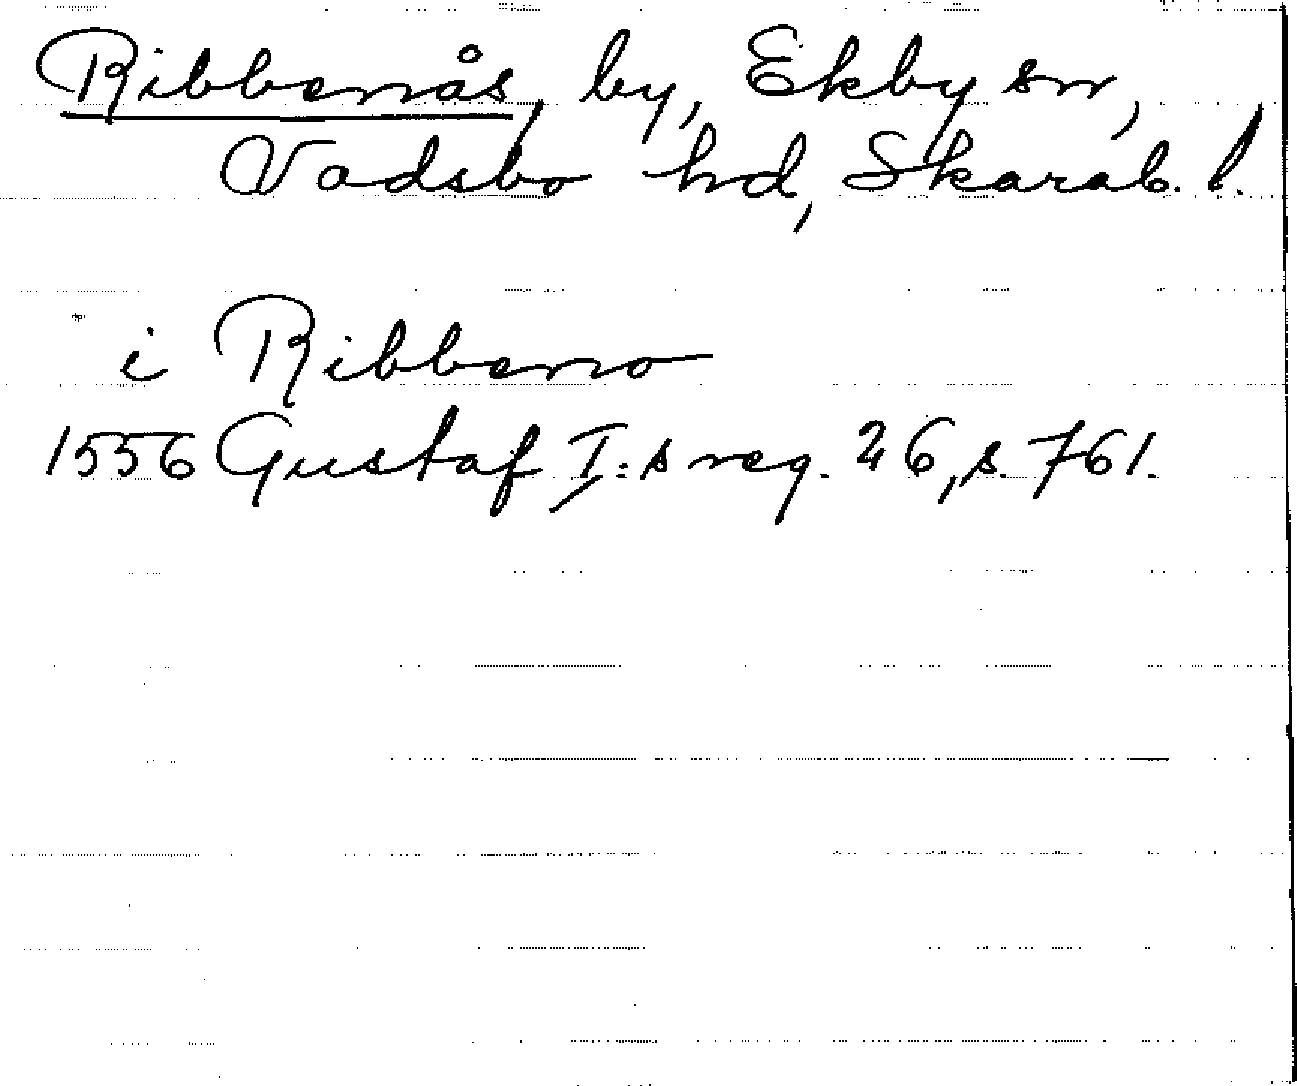 Ribbenås, by, Ekby sn,
Vadsbo hd, Skarab. l.
i Ribbeno
1556 Gustaf I:s reg. 26, s. 761.